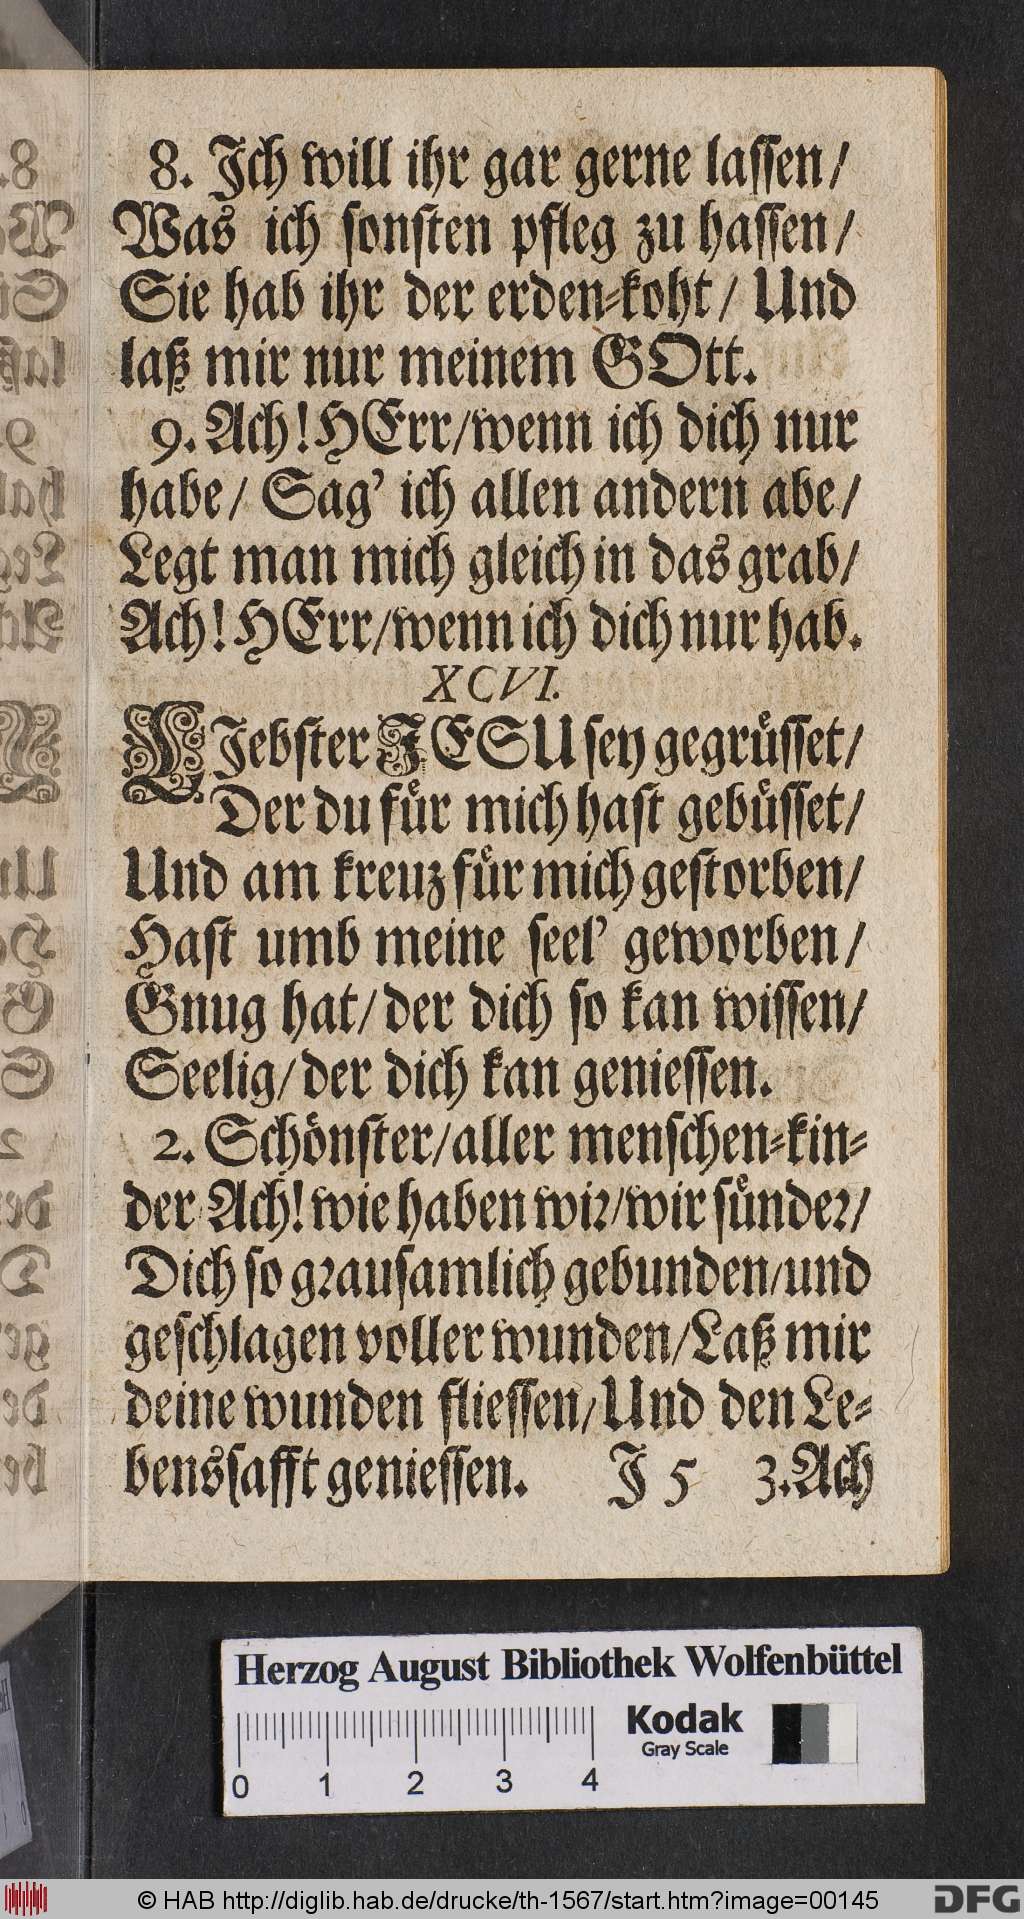 8. Jch will ihr gar gerne lassen/
Was ich sonsten pfleg zu hassen/
Sie hab ihr der erden-koht/ Und
laß mir nur meinem GOtt.
9. Ach! HErr/wenn ich dich nur
habe/ Sag' ich allen andern abe/
Legt man mich gleich in das grab/
Ach! HErr/wenn ich dich nur hab.
XCVI.
LJebster JESU sey gegrüsset/
Der du für mich hast gebüsset/
Und am kreuz für mich gestorben/
Hast umb meine seel' geworben/
Gnug hat/ der dich so kan wissen/
Seelig/ der dich kan geniessen.
2. Schönster/aller menschen-kin-
der Ach! wie haben wir/wir sünder/
Dich so grausamlich gebunden/und
geschlagen voller wunden/Laß mir
deine wunden fliessen/Und den Le-
benssafft geniessen. J 5 3. Ach
Herzog August Bibliothek Wolfenbüttel
Kodak
Gray Scale
0 1 2 3 4
© HAB http://diglib.hab.de/drucke/th-1567/start.htm?image=00145
DFG